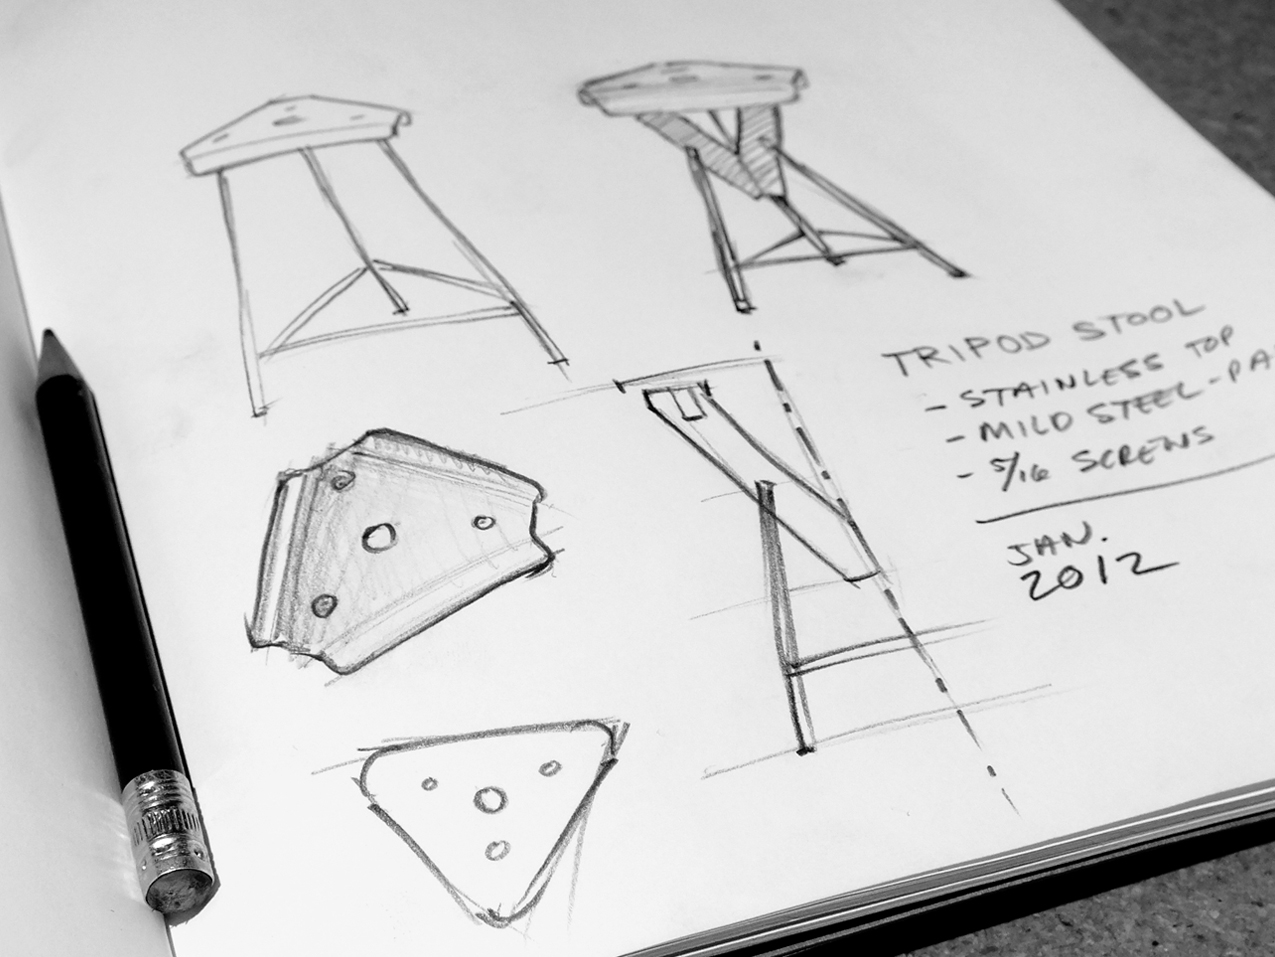 TRIPOD STOOL
- STAINLESS TOP
- MILD STEEL - PA
- 5/16 SCREWS
JAN.
2012